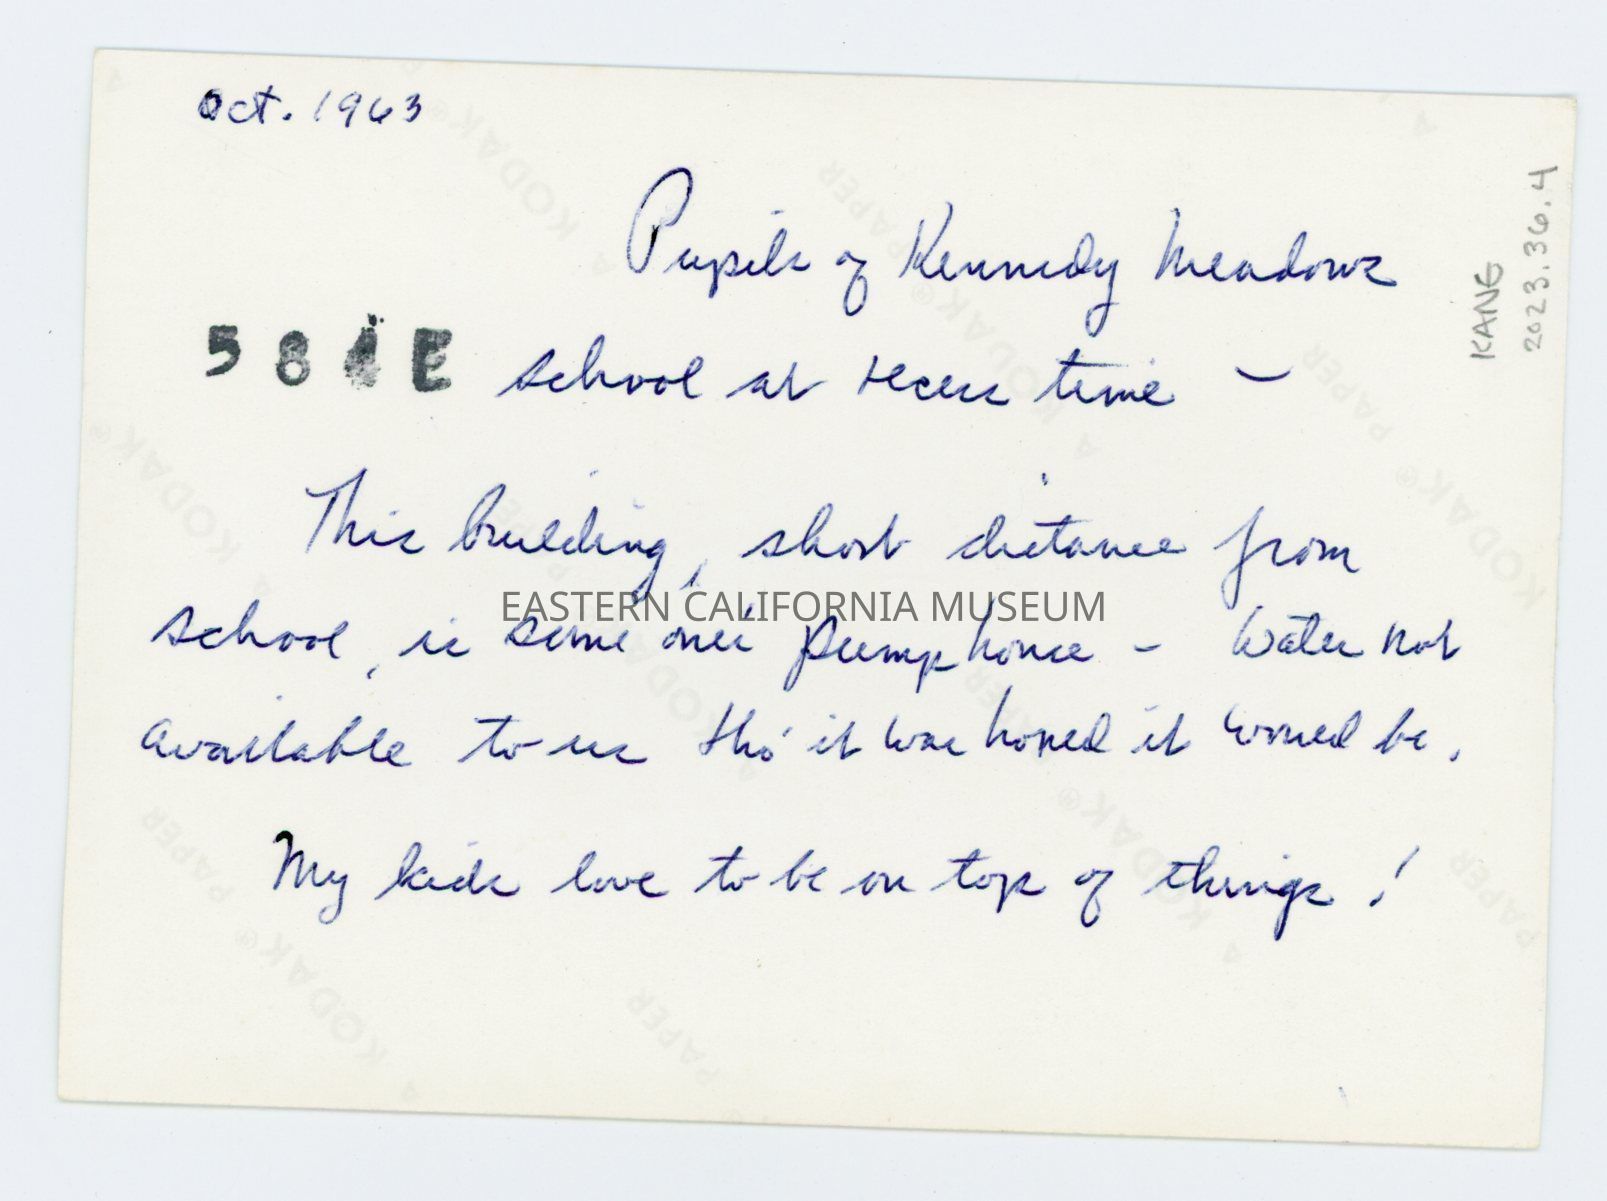 Oct. 1963
Pupils of Kennedy Meadows
584E
school at recess time –
This building, short distance from
school, is some one's pump house – Water not
available to us tho' it was hoped it would be.
My kids love to be on top of things!
KANG
2023.36.4
EASTERN CALIFORNIA MUSEUM
KODAK® PAPER